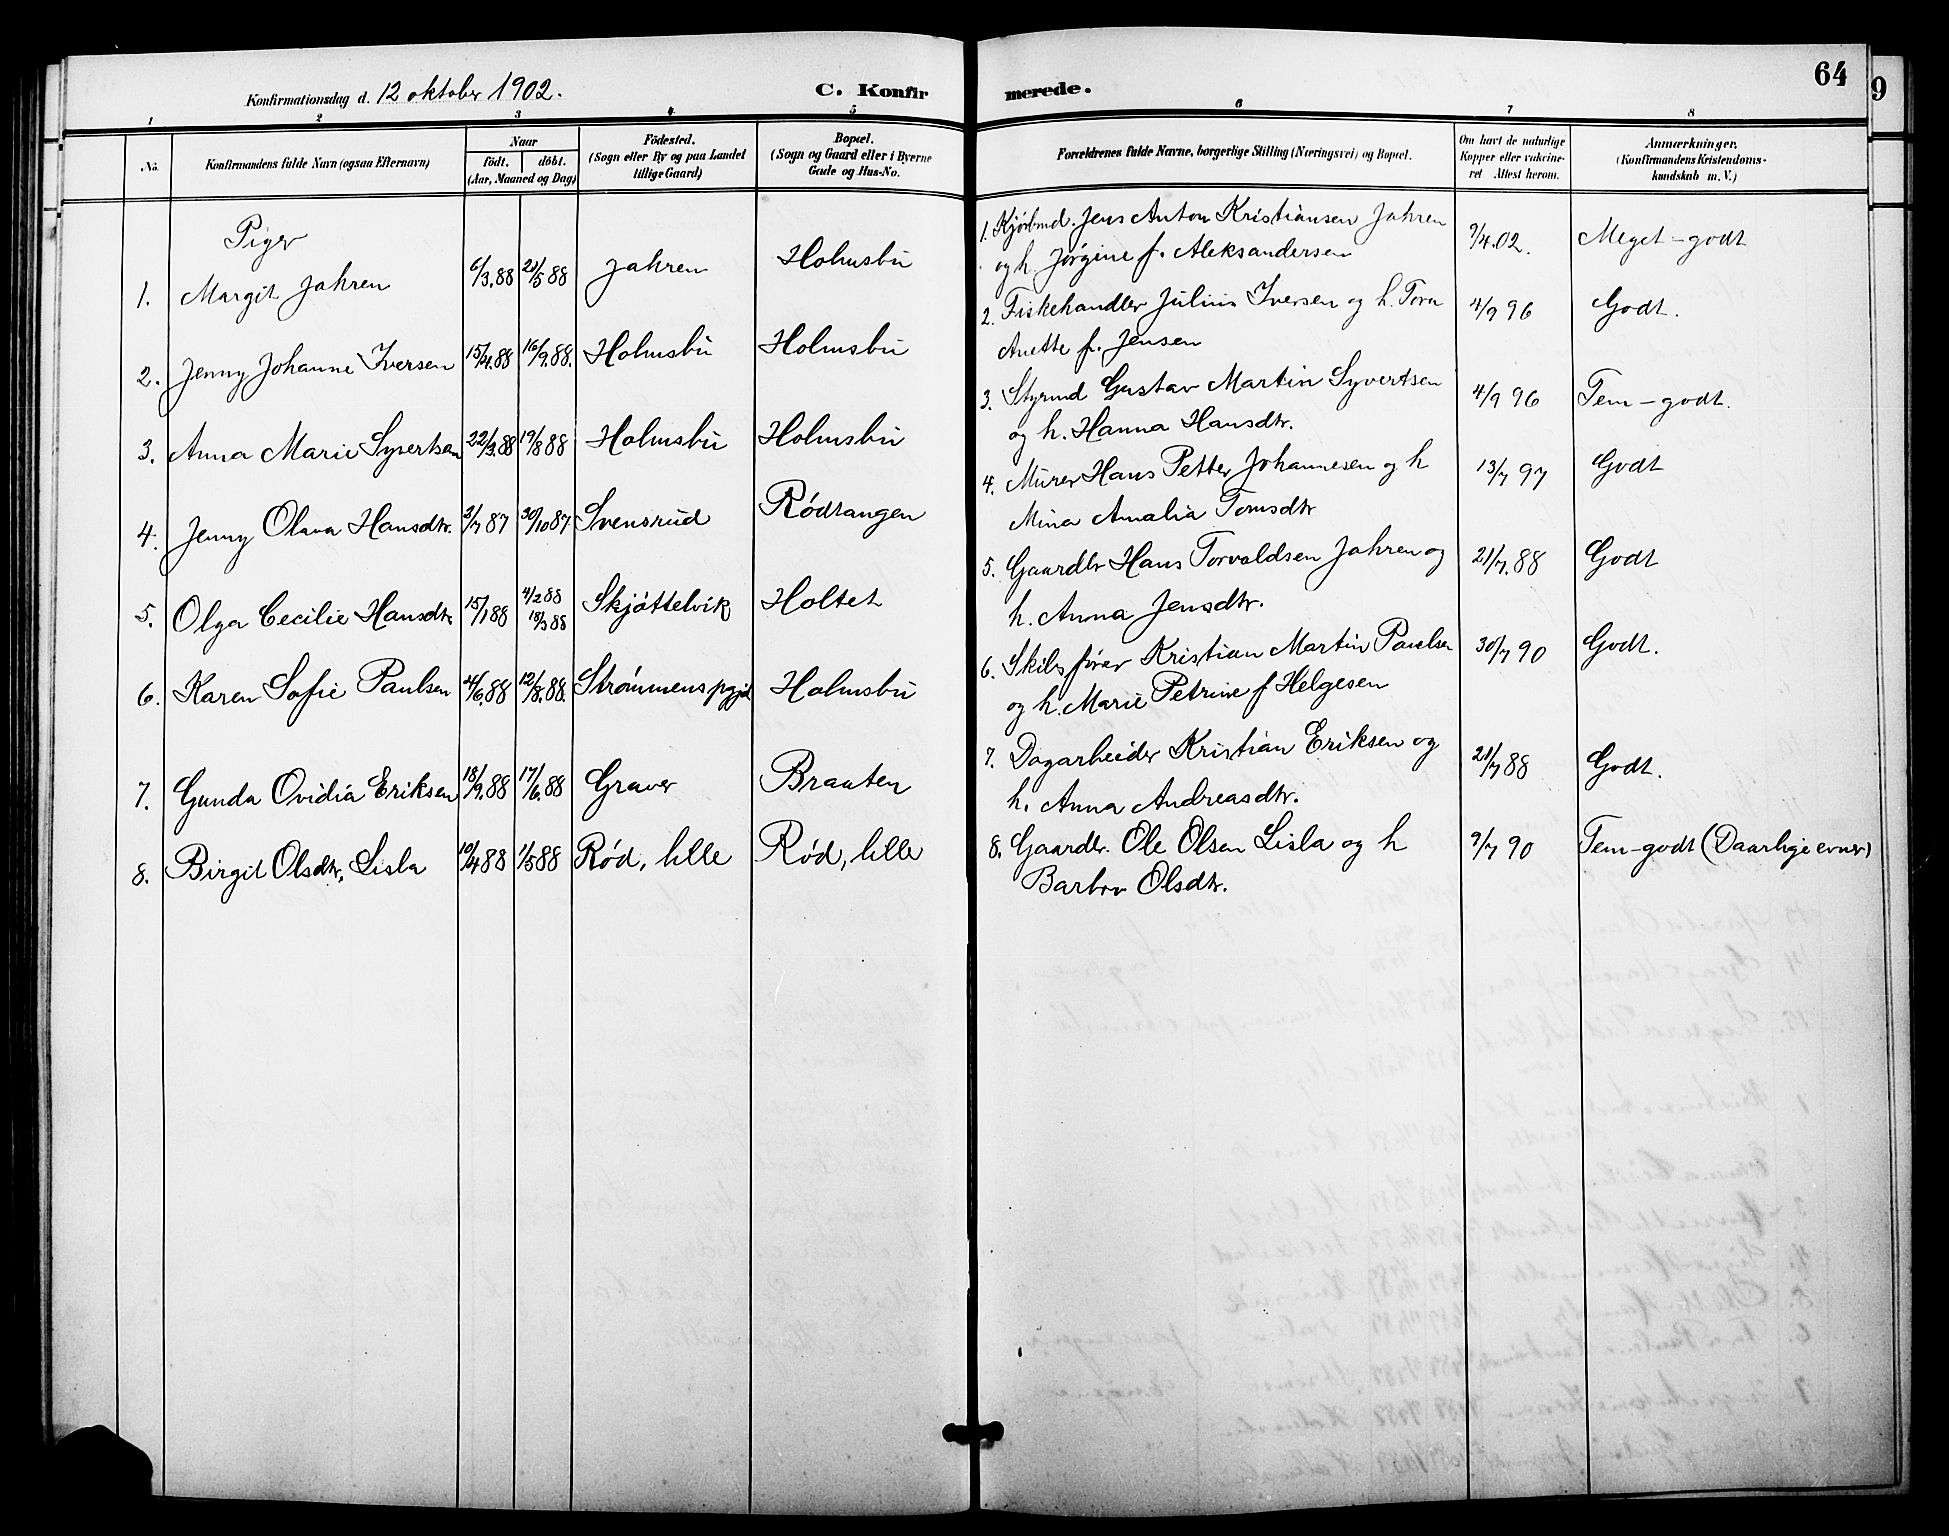 Konfirmationsdag d. 12 oktober 1902. C. Konfir
1 2 3 4 5
No. Konfirmandens fulde Navn (ogsaa Efternavn) Naar født. døbt. (Aar, Maaned og Dag) Fødested. (Sogn eller By og paa Landet tillige Gaard) Bopæl. (Sogn og Gaard eller i Byerne Gade og Hus-No.
Piger
1. Margit Jahren 6/3.88 21/5 88 Jahren Holmsbu
2. Jenny Johanne Iversen 15/4.88 16/9.88. Holmsbu Holmsbu
3. Anna Marie Syvertsen 22/3.88 19/8 88 Holmsbu Holmsbu
4. Jenny Olava Hansdtr. 3/7 87 30/10 87 Svensrud Rødtangen
5. Olga Cecilie Hansdtr 15/1 88 4/2 88 18/3 88 Skjøttelvik Holtet
6. Karen Sofie Paulsen 4/6.88 12/8.88. Strømmens pgjd Holmsbu
7. Gunda Ovidia Eriksen 18/2.88 17/6.88 Graver Braaten
8. Birgit Olsdtr. Lisla 10/4 88 1/5 88 Rød, lille Rød, lille
merede. 64
9
6 7 8
Forældrenes fulde Navne, borgerlige Stilling (Næringsvei) og Bopæl. Om havt de naturlige Kopper eller vaccineret Attest herom. Anmærkninger. (Konfirmandens Kristendomskundskab m. V.)
1. Kjøbmd. Jens Anton Kristiansen Jahren 9/4.02. Meget-godt
og h. Jørgine f. Aleksandersen
2. Fiskehandler Julius Iversen og h. Tora 4/9 96 Godt.
Anette f. Jensen
3. Styrmd Gustav Martin Syvertsen 4/9 96 Tem-godt.
og h. Hanna Hansdtr.
4. Murer Hans Petter Johannesen og h 13/7 97 Godt
Mina Amalia Tomsdtr
5. Gaardbr Hans Torvaldsen Jahren og 21/7.88 Godt
h. Anna Jensdtr.
6. Skibsfører Kristian Martin Paulsen 30/7 90 Godt.
og h. Marie Petrine f Helgesen
7. Dagarbeider Kristian Eriksen og 21/7 88 Godt.
h. Anna Andreasdtr.
8. Gaardbr. Ole Olsen Lisla og h 9/7 90 Tem-godt (Daarlige evner)
Barbro Olsdtr.